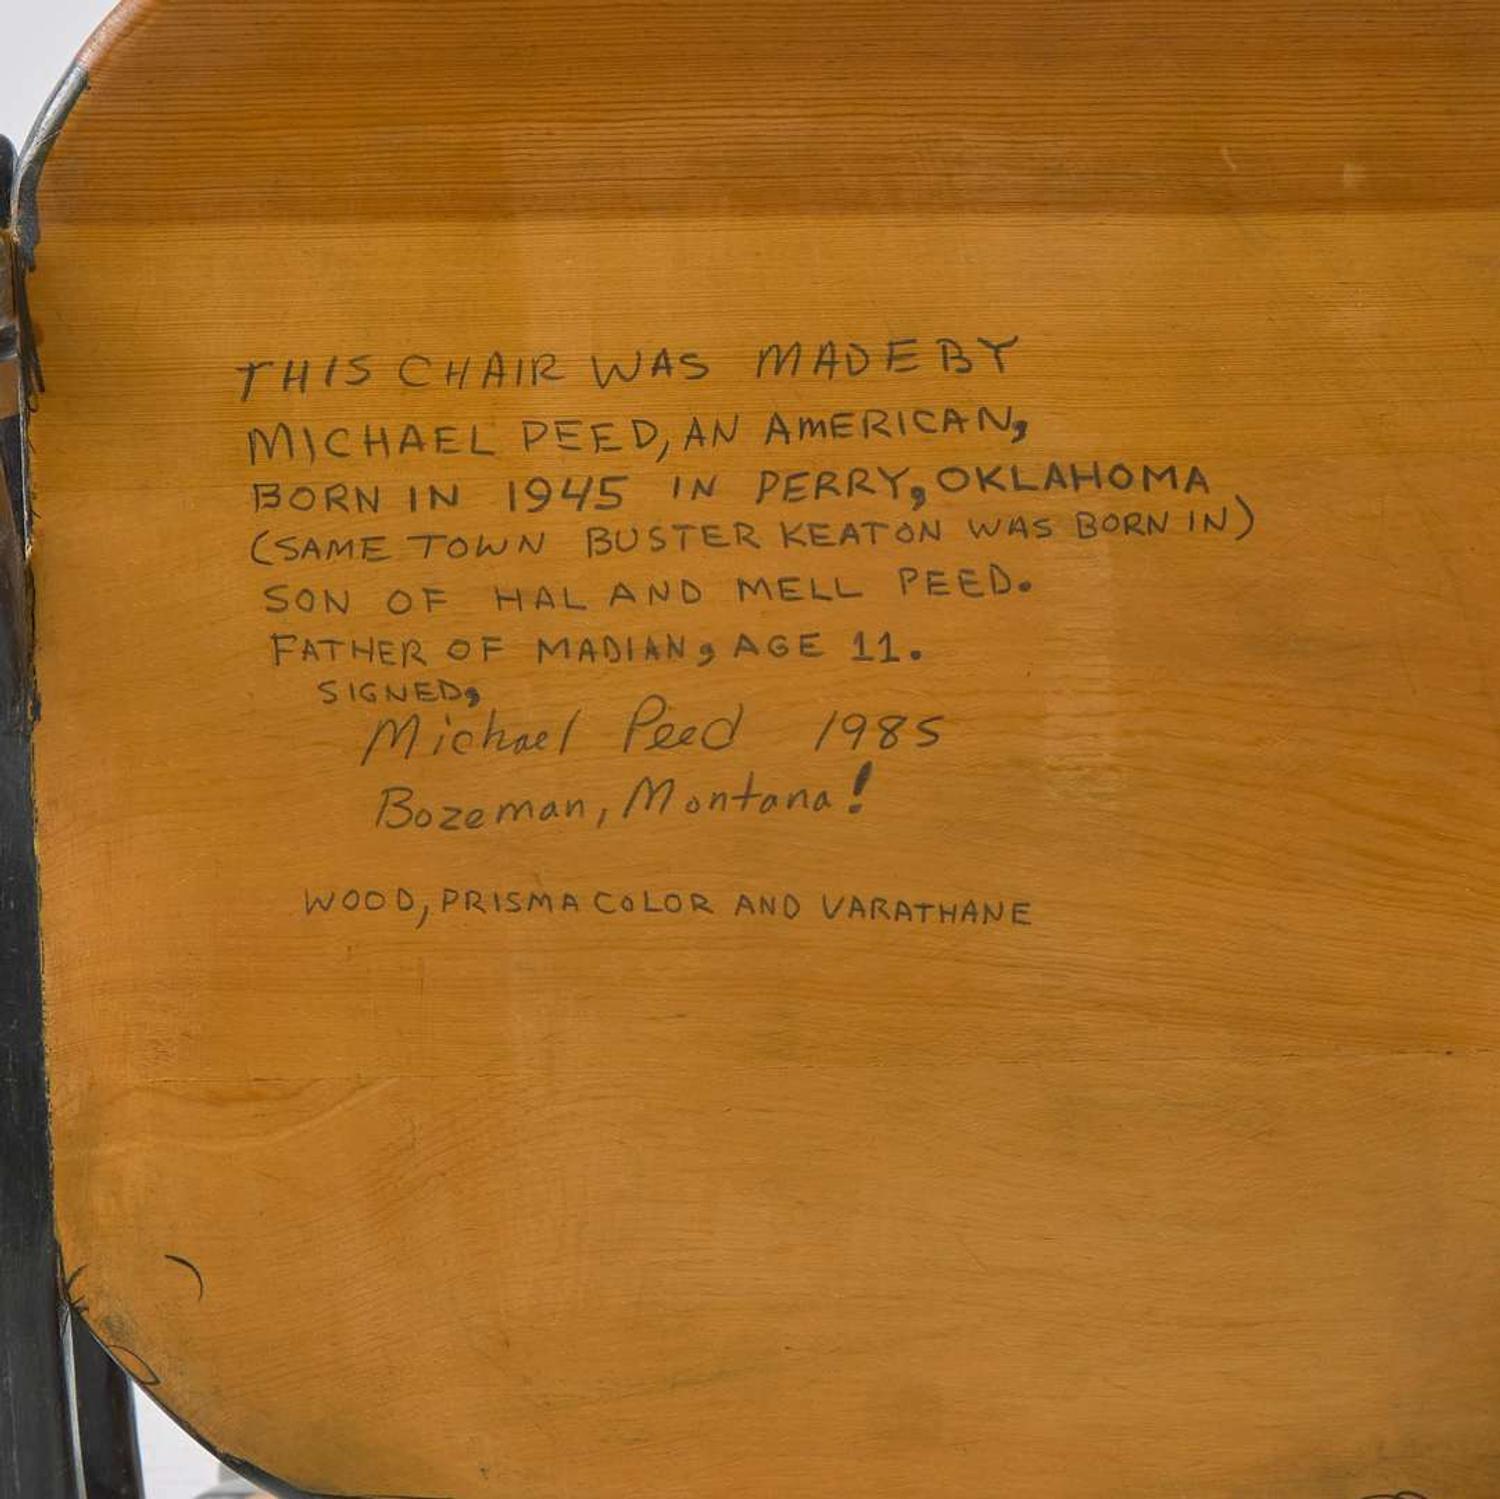 THIS CHAIR WAS MADE BY
MICHAEL PEED, AN AMERICAN,
BORN IN 1945 IN PERRY, OKLAHOMA
(SAME TOWN BUSTER KEATON WAS BORN IN)
SON OF HAL AND MELL PEED.
FATHER OF MADIAN, AGE 11.
SIGNED,
Michael Peed 1985
Bozeman, Montana!
WOOD, PRISMA COLOR AND VARATHANE